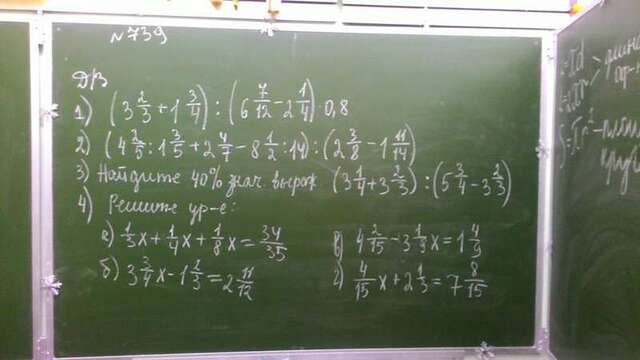 №739
ДРЗ
1) (3 2/3 + 1 3/4) : (6 7/12 - 2 1/4) · 0,8
2) (4 2/5 : 1 3/5 + 2 4/7 - 8 1/2 : 14) : (2 3/8 - 1 11/14)
3) Найдите 40% знач. выраж (3 1/4 + 3 2/3) : (5 3/4 - 3 2/3)
4) Решите ур-е:
а) 1/3 x + 1/4 x + 1/8 x = 34/35
в) 4 2/15 - 3 1/3 x = 1 4/9
б) 3 3/4 x - 1 2/3 = 2 11/12
г) 4/15 x + 2 1/3 = 7 8/15